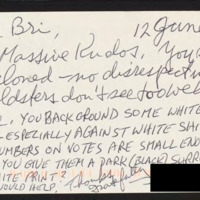 Bri, 12 June
Massive Kudos, You
cloned - no disrespect in
oldsters don't see too well
, YOU BACKGROUND SOME WHITE
- ESPECIALLY AGAINST WHITE SHI
UMBERS ON VOTES ARE SMALL ENO
YOU GIVE THEM A DARK (BLACK) SURR
ITE PRINT?
OULD HELP. Thanks,